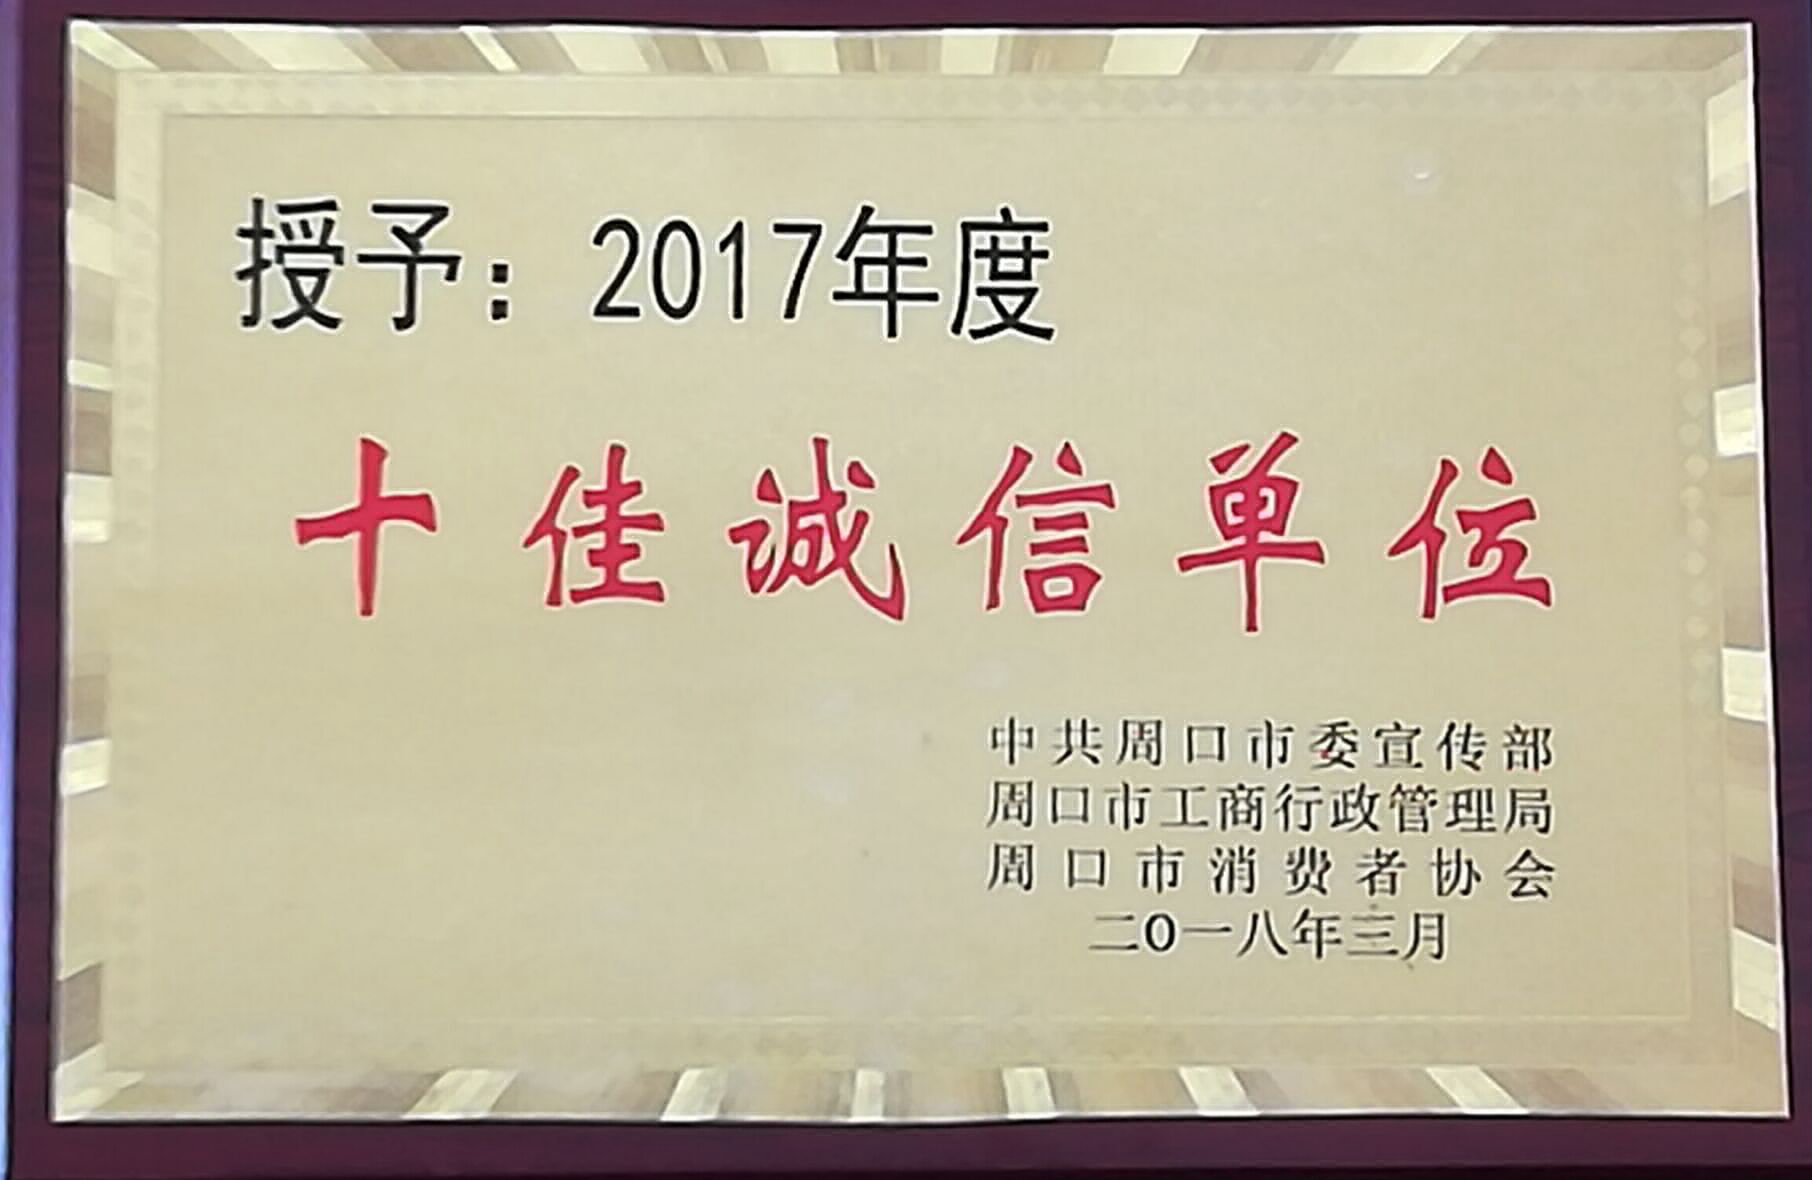 授予：2017年度
十佳诚信单位
中共周口市委宣传部
周口市工商行政管理局
周口市消费者协会
二0一八年三月